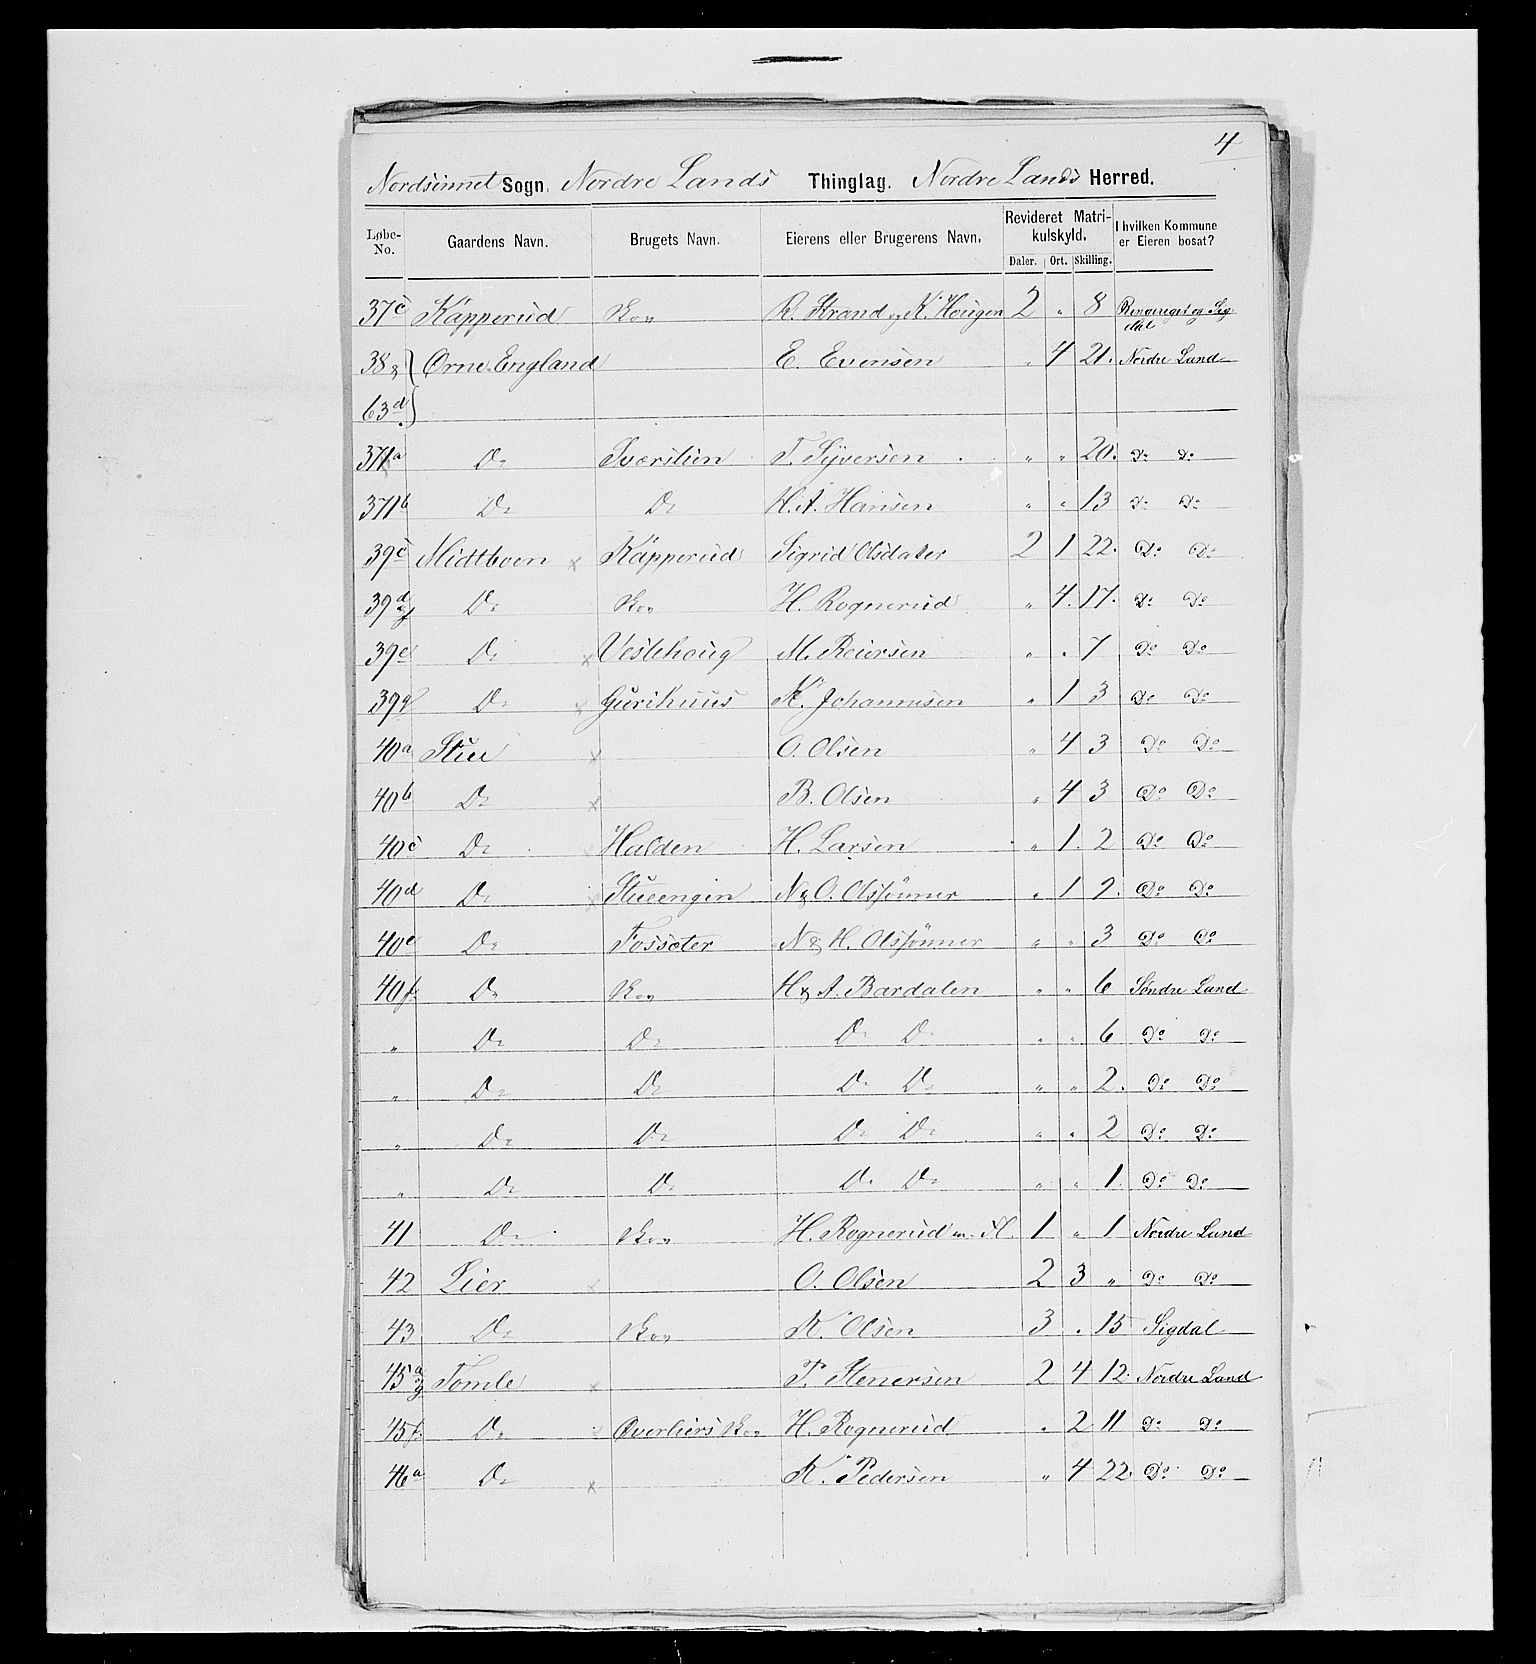 4
Nordsinnet Sogn. Nordre Lands Thinglag. Nordre Lands Herred.
Løbe-No. Gaardens Navn. Brugets Navn. Eierens eller Brugerens Navn. Revideret Matrikulskyld. Daler. Ort. Skilling. I hvilken Kommune er Eieren bosat?
37c Kapperud R. Strand og K. Hougen 2 " 8 Ringeriget og Sigdal
38 & Ørne England E. Evensen " 4 21. Nordre Land
63d
371a Do Sverstien T. Syversen " " 20. Do Do
371b Do Do H. A. Hansen " " 13 Do Do
39c Midtboen x Kapperud Sigrid Olsdater 2 1 22. Do Do
39d Do H. Rognerud " 4. 17. Do Do
39e Do x Veslehoug M. Reiersen " " 7 Do Do
39 Do x Gurihuus K. Johannesen " 1 3 Do Do
40a Stue x O. Olsen " 4 3 Do Do
40b Do x B. Olsen " 4 3 Do Do
40c Do Halden H. Larsen " 1. 2 Do Do
40d Do x Stueengin N & O. Olssønner " 1 2. Do Do
40e Do Fossæter N & H. Olssønner " " 3 Do Do
40f. Do H & A. Bardalen " " 6 Søndre Land
" Do Do Do Do " " 6 Do Do
" Do Do Do Do " " 2. Do Do
" Do Do Do Do " " 2 Do Do
" Do Do Do Do " " 1. Do Do
41 Do H. Rognerud m. Fl. 1 " 1 Nordre Land
42 Lier x O. Olsen 2 3 " Do Do
43 Do K. Olsen 3 " 15 Sigdal
45a Tomle x P. Stenersen 2 4 12. Nordre Land
45f. Do Overliers H. Rognerud " 2 11 Do Do
46a Do x K. Pedersen " 4 22. Do Do